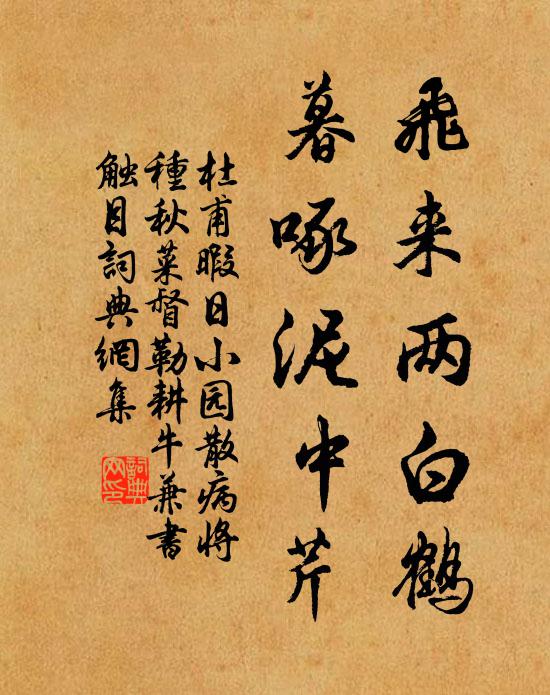 飛来两白鶴
暮啄泥中芹
杜甫暇日小园散病将
種秋菜督勒耕牛兼書
触目詞典網集
詞典
网印